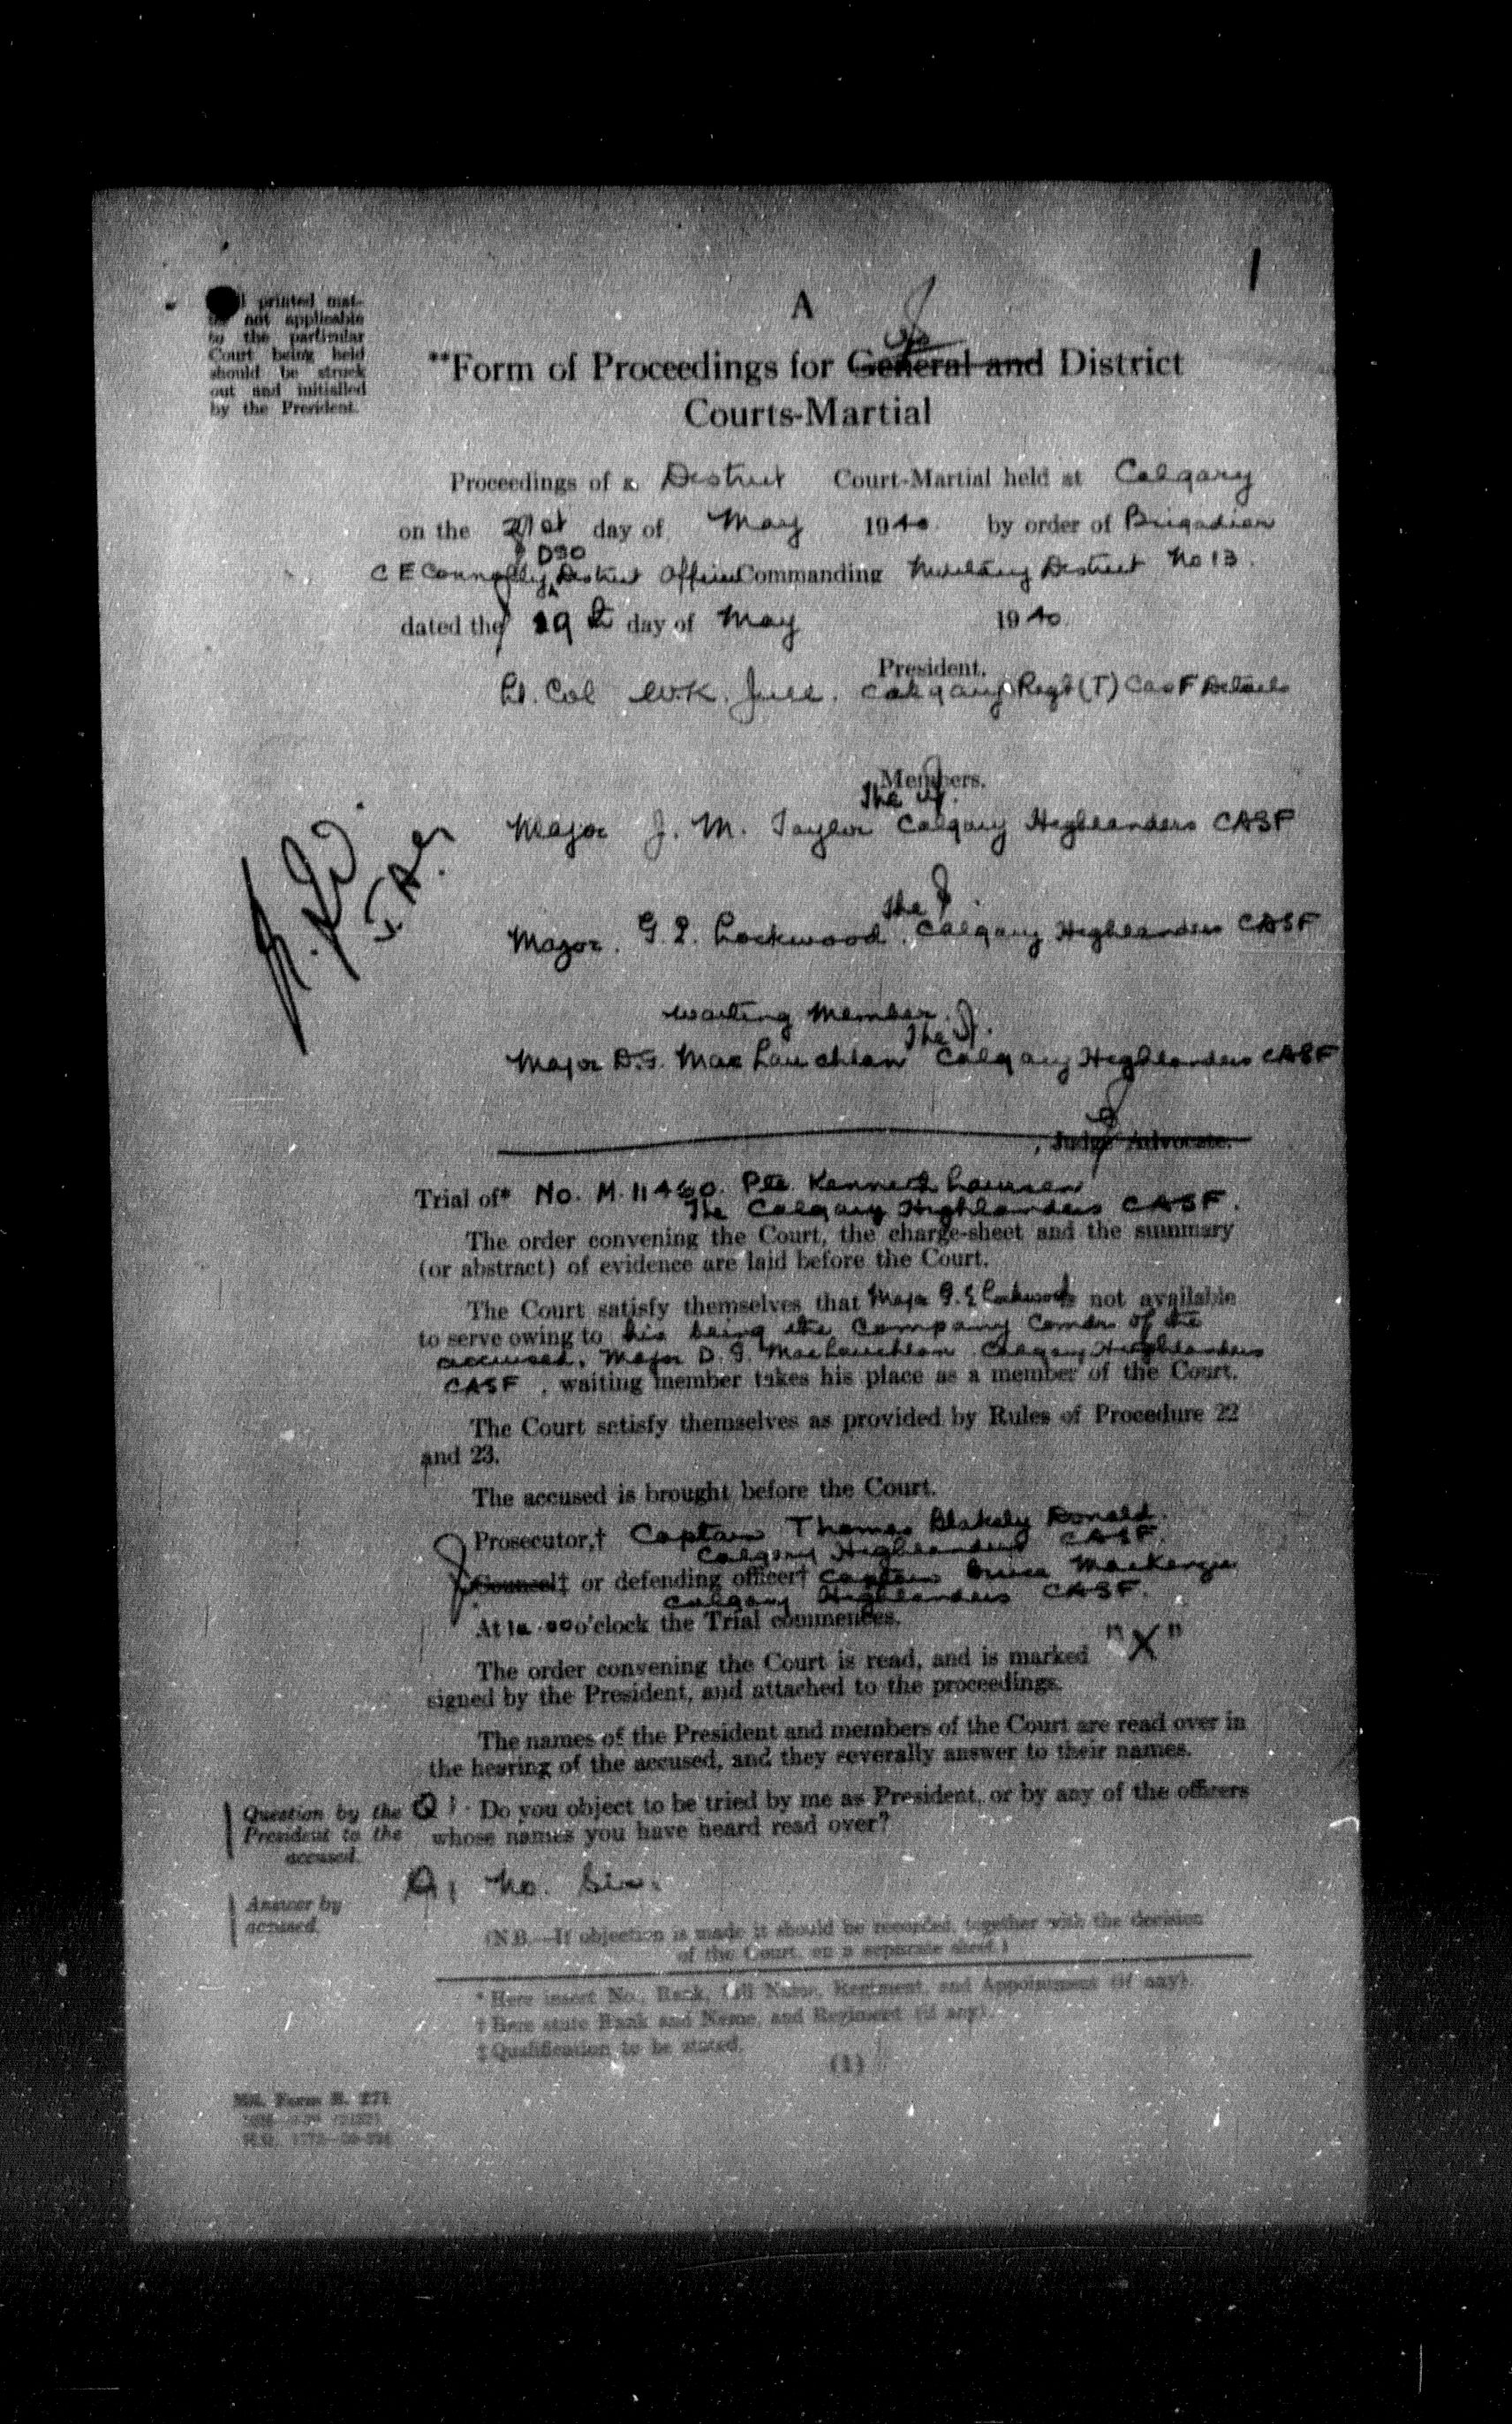 1
printed mat-
not applicable
to the particular
Court being held
should be struck
out and initialled
by the President.
A
**Form of Proceedings for General and District
Courts-Martial
Proceedings of a District Court-Martial held at Calgary
on the 31st day of May 1940. by order of Brigadier
DSO
C E Connolly, District Officer Commanding Military District No 13.
dated the 29th day of May 1940.
President.
Lt. Col W.K. Jull. Calgary Regt (T) CASF Details
Members.
The
Major J. M. Taylor Calgary Highlanders CASF
The
Major. G. E. Lockwood. Calgary Highlanders CASF
Waiting Member.
The
Major D.G. MacLauchlan Calgary Highlanders CASF
, Judge Advocate.
Trial of* No. M. 11460. Pte. Kenneth Laursen
The Calgary Highlanders CASF.
The order convening the Court, the charge-sheet and the summary
(or abstract) of evidence are laid before the Court.
The Court satisfy themselves that Major G. E Lockwood is not available
to serve owing to his being the Company Comdr of the
accused. Major D. G. MacLauchlan Calgary Highlanders
CASF , waiting member takes his place as a member of the Court.
The Court satisfy themselves as provided by Rules of Procedure 22
and 23.
The accused is brought before the Court.
Prosecutor,† Captain Thomas Blakely Donald.
Calgary Highlanders CASF.
Counsel‡ or defending officer† Captain Bruce Mackenzie
Calgary Highlanders CASF.
At 10.00 o'clock the Trial commences.
The order convening the Court is read, and is marked "X"
signed by the President, and attached to the proceedings.
The names of the President and members of the Court are read over in
the hearing of the accused, and they severally answer to their names.
Question by the
President to the
accused.
Q: Do you object to be tried by me as President, or by any of the officers
whose names you have heard read over?
Answer by
accused.
A: No. Sir.
(N.B.—If objection is made it should be recorded, together with the decision
of the Court, on a separate sheet.)
* Here insert No., Rank, full Name, Regiment, and Appointment (if any).
† Here state Rank and Name, and Regiment (if any).
‡ Qualification to be stated.
(1)
Mil. Form B. 271